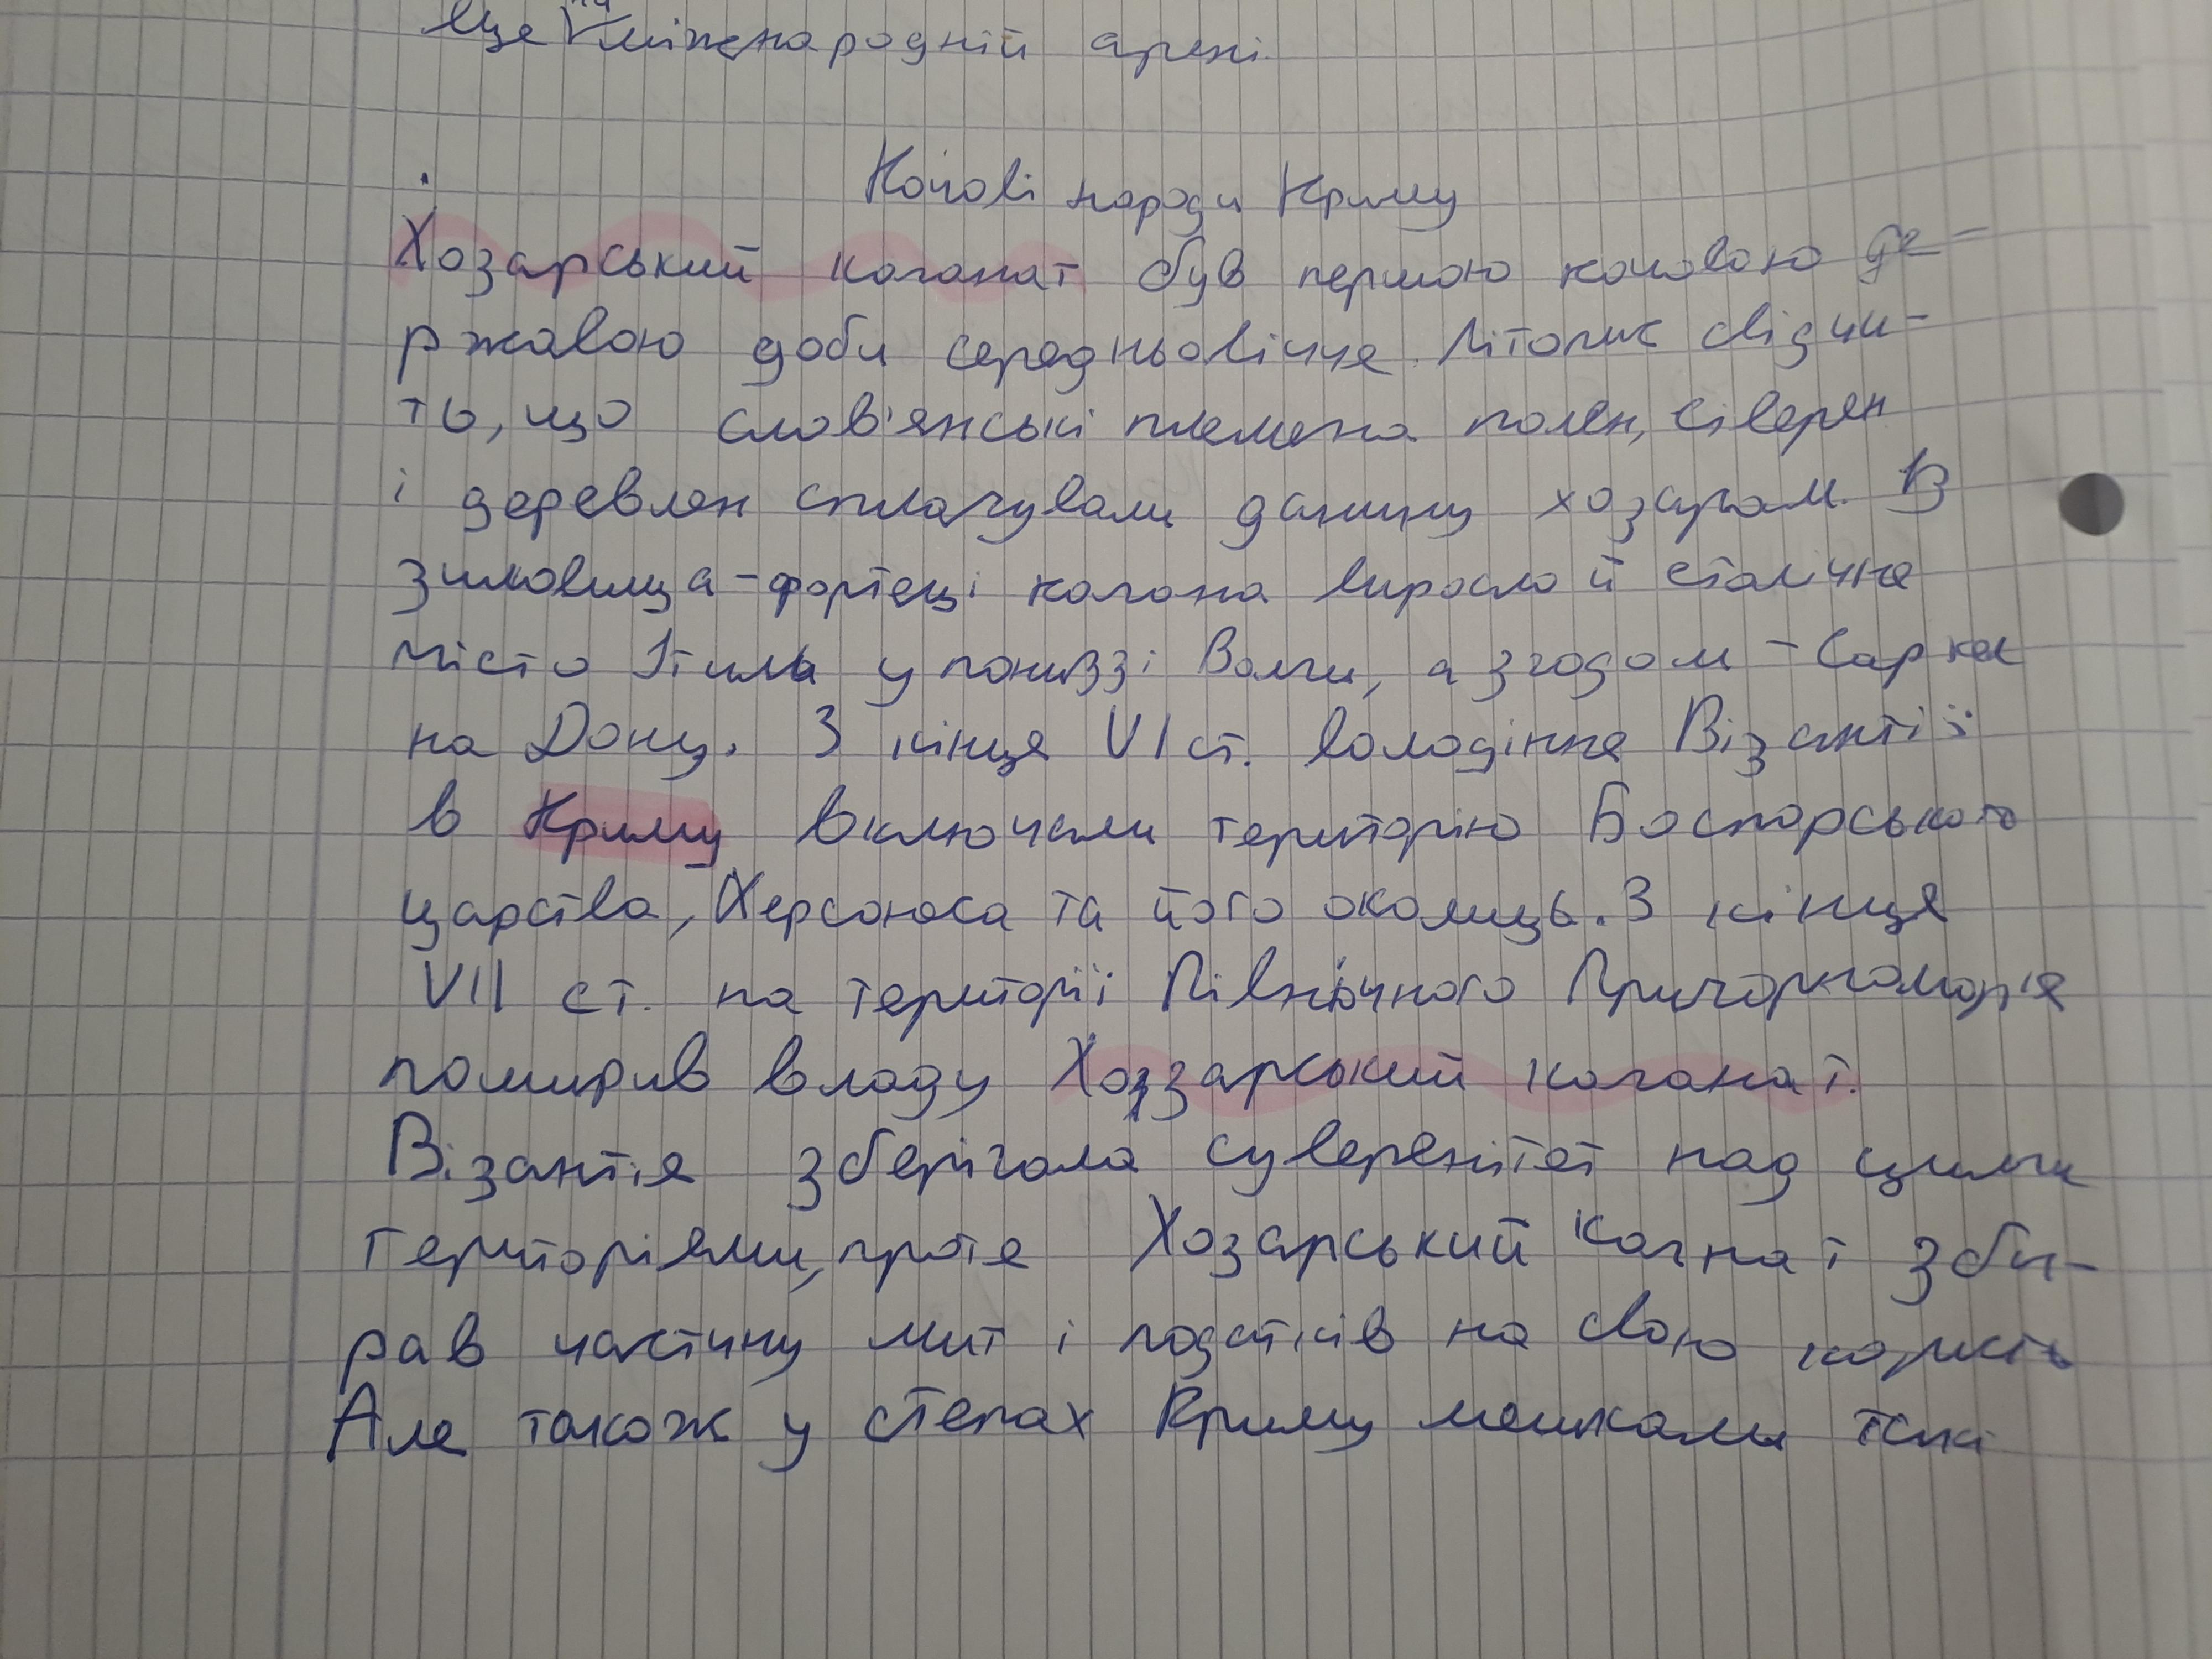 ще на міжнародній арені.
Кочові народи Криму
Хозарський каганат був першою кочовою де-
ржавою доби середньовіччя. Літопис свідчи-
ть, що слов'янські племена полян, сіверян
і деревлян сплачували данину хозарам. В
зимовища-фортеці кагана виросло й столичне
місто Ітиль у пониззі Волги, а згодом - Саркел
на Дону. З кінця VI ст. володіння Візантії
в Криму включали територію Боспорського
царства, Херсонеса та його околиць. З кінця
VII ст. на території Північного Причорномор'я
поширив владу Хозарський каганат.
Візантія зберігала суверенітет над цими
територіями, проте Хозарський Кагнат зби-
рав частину мит і податків на свою користь
Але також у степах Криму мешкали такі